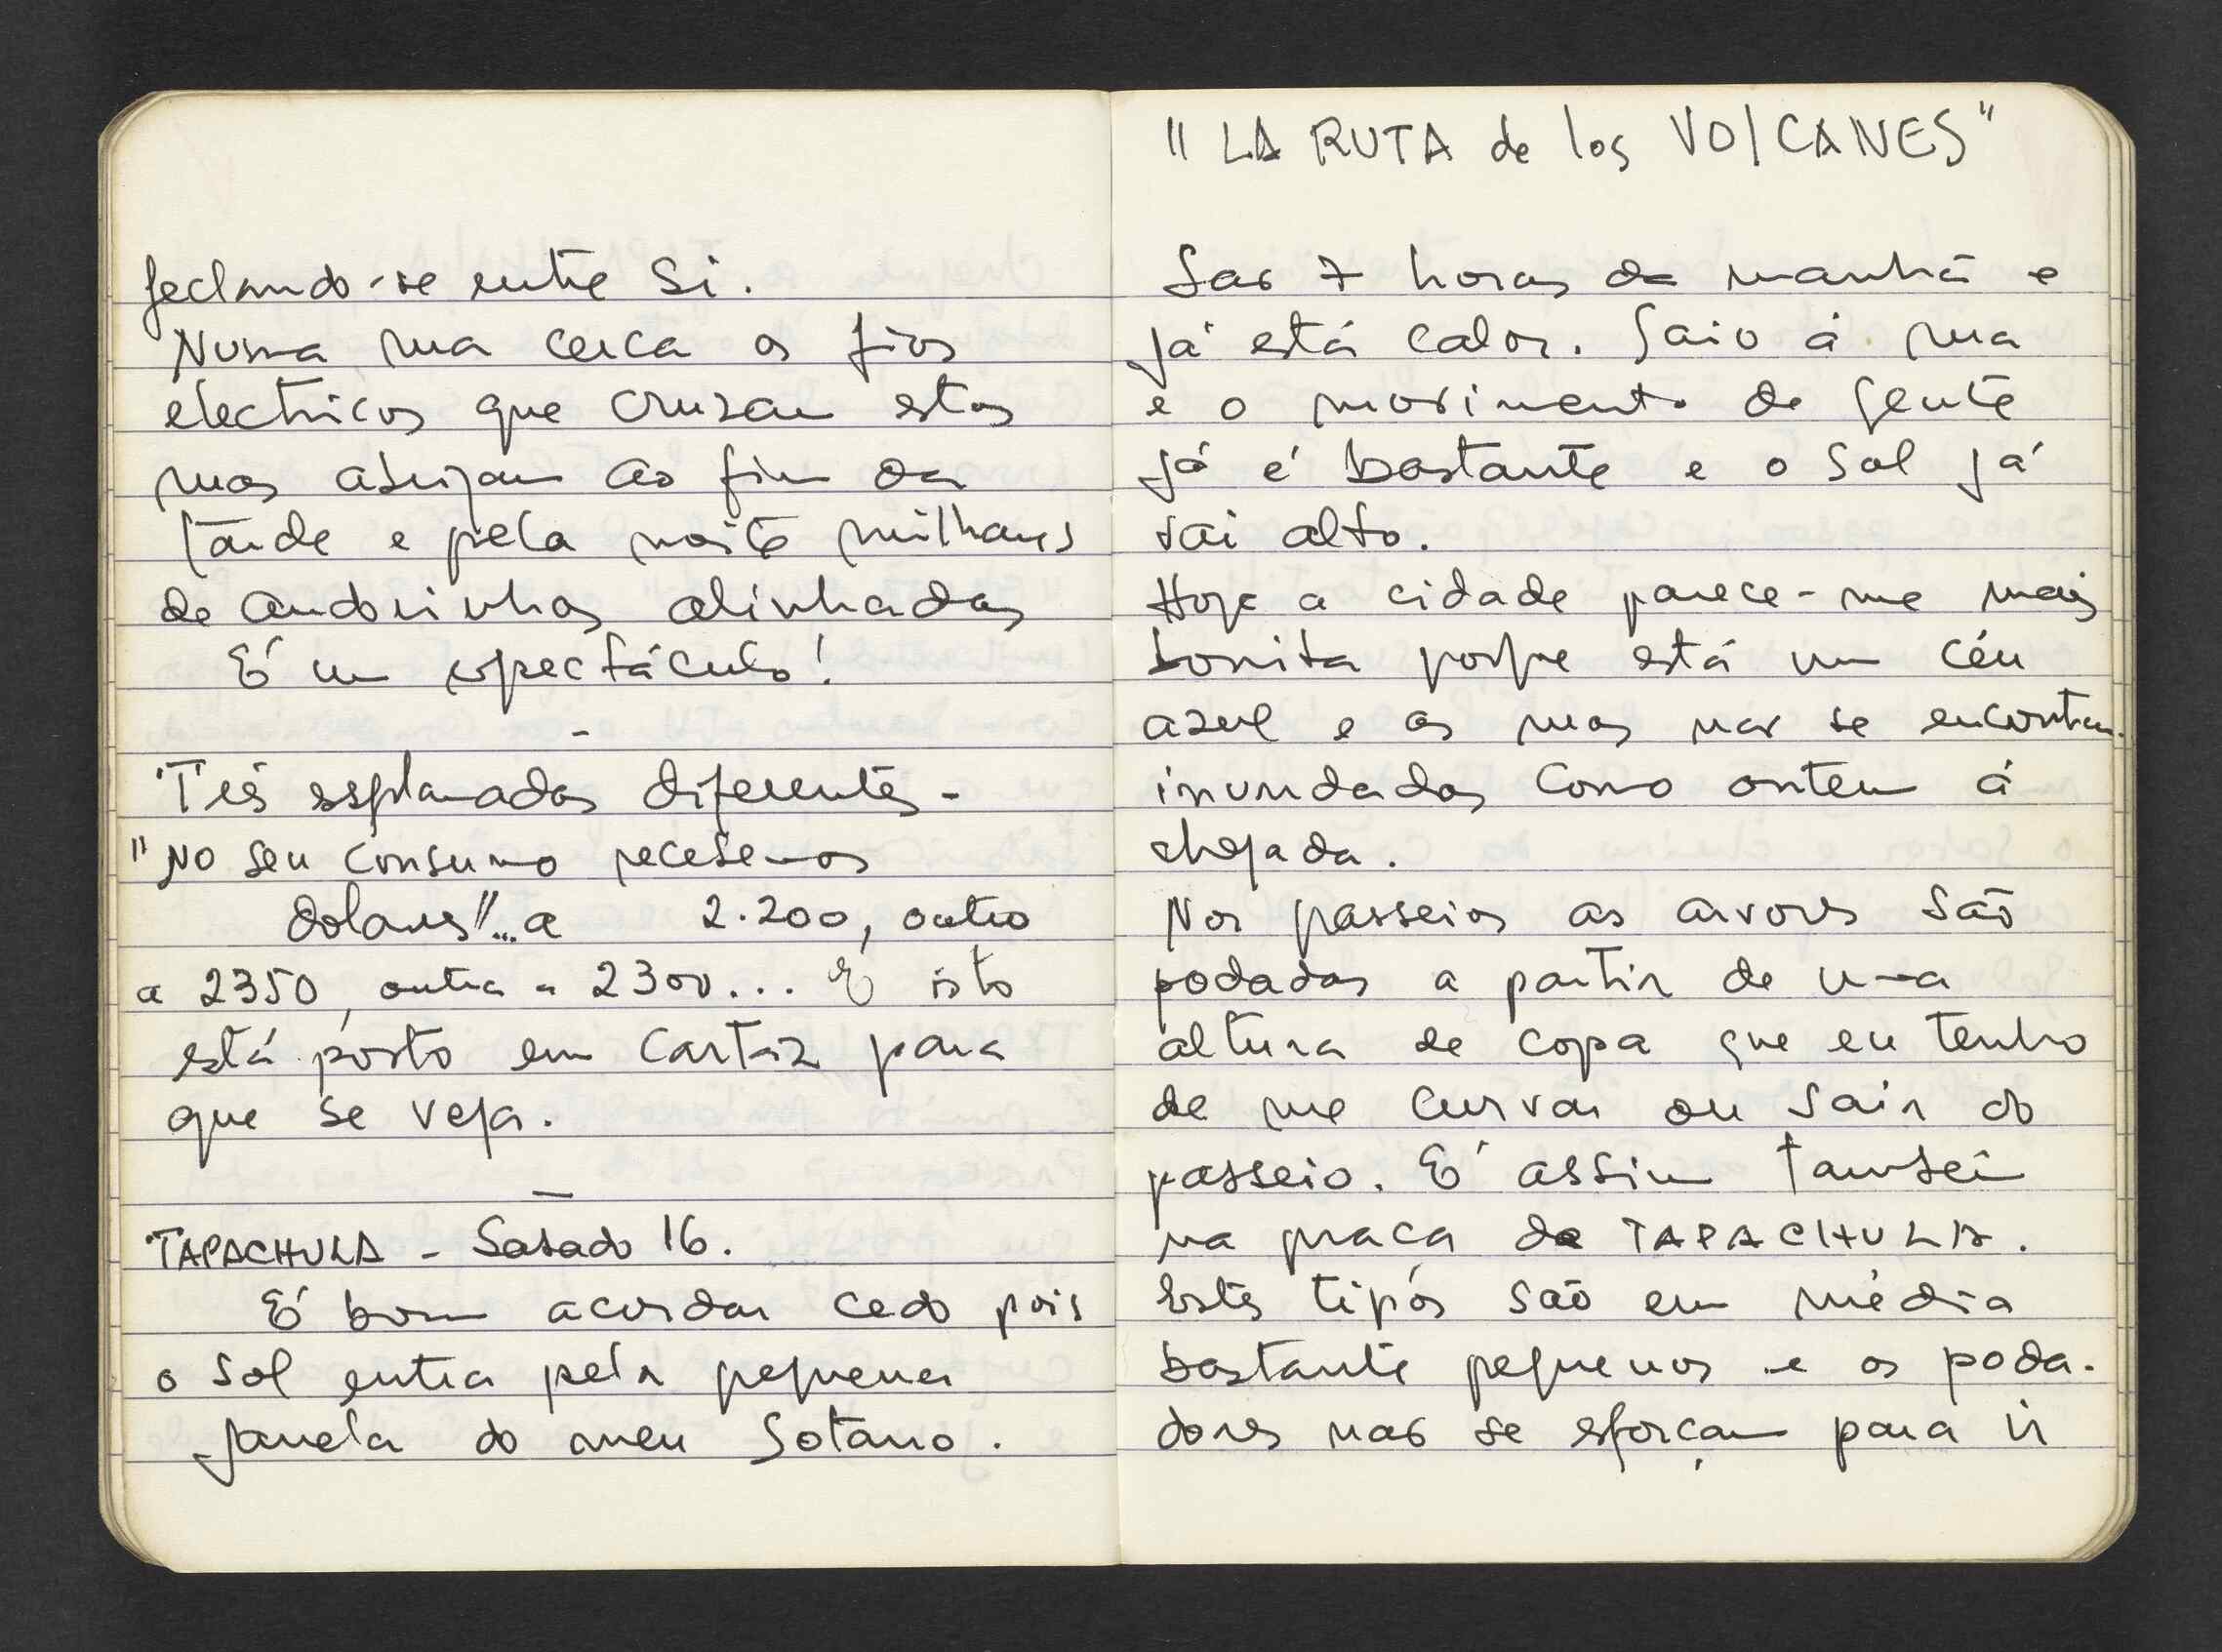 fechando-se entre si.
Numa rua cerca os fios
electricos que cruzam estas
ruas abrigam ao fim da
tarde e pela noite milhares
de andorinhas alinhadas
É um espectáculo!
-
Três esplanadas diferentes -
"No seu consumo recebemos
dolares"... a 2.200, outro
a 2350, outra a 2300... E isto
está posto em cartaz para
que se veja.
—
TAPACHULA - Sabado 16.
É bom acordar cedo pois
o sol entra pela pequena
janela do meu Sotano.
"LA RUTA de los VOLCANES"
Sao 7 horas da manhã e
já está calor. Saio á rua
e o movimento de gente
já é bastante e o sol já
vai alto.
Hoje a cidade parece-me mais
bonita porque está um céu
azul e as ruas nao se encontram
inundadas como ontem á
chegada.
Nos passeios as arvores são
podadas a partir de uma
altura de copa que eu tenho
de me curvar ou sair do
passeio. É assim tambem
na praça de TAPACHULA.
Estes tipos são em média
bastante pequenos e os poda-
dores nao se esforçam para ir